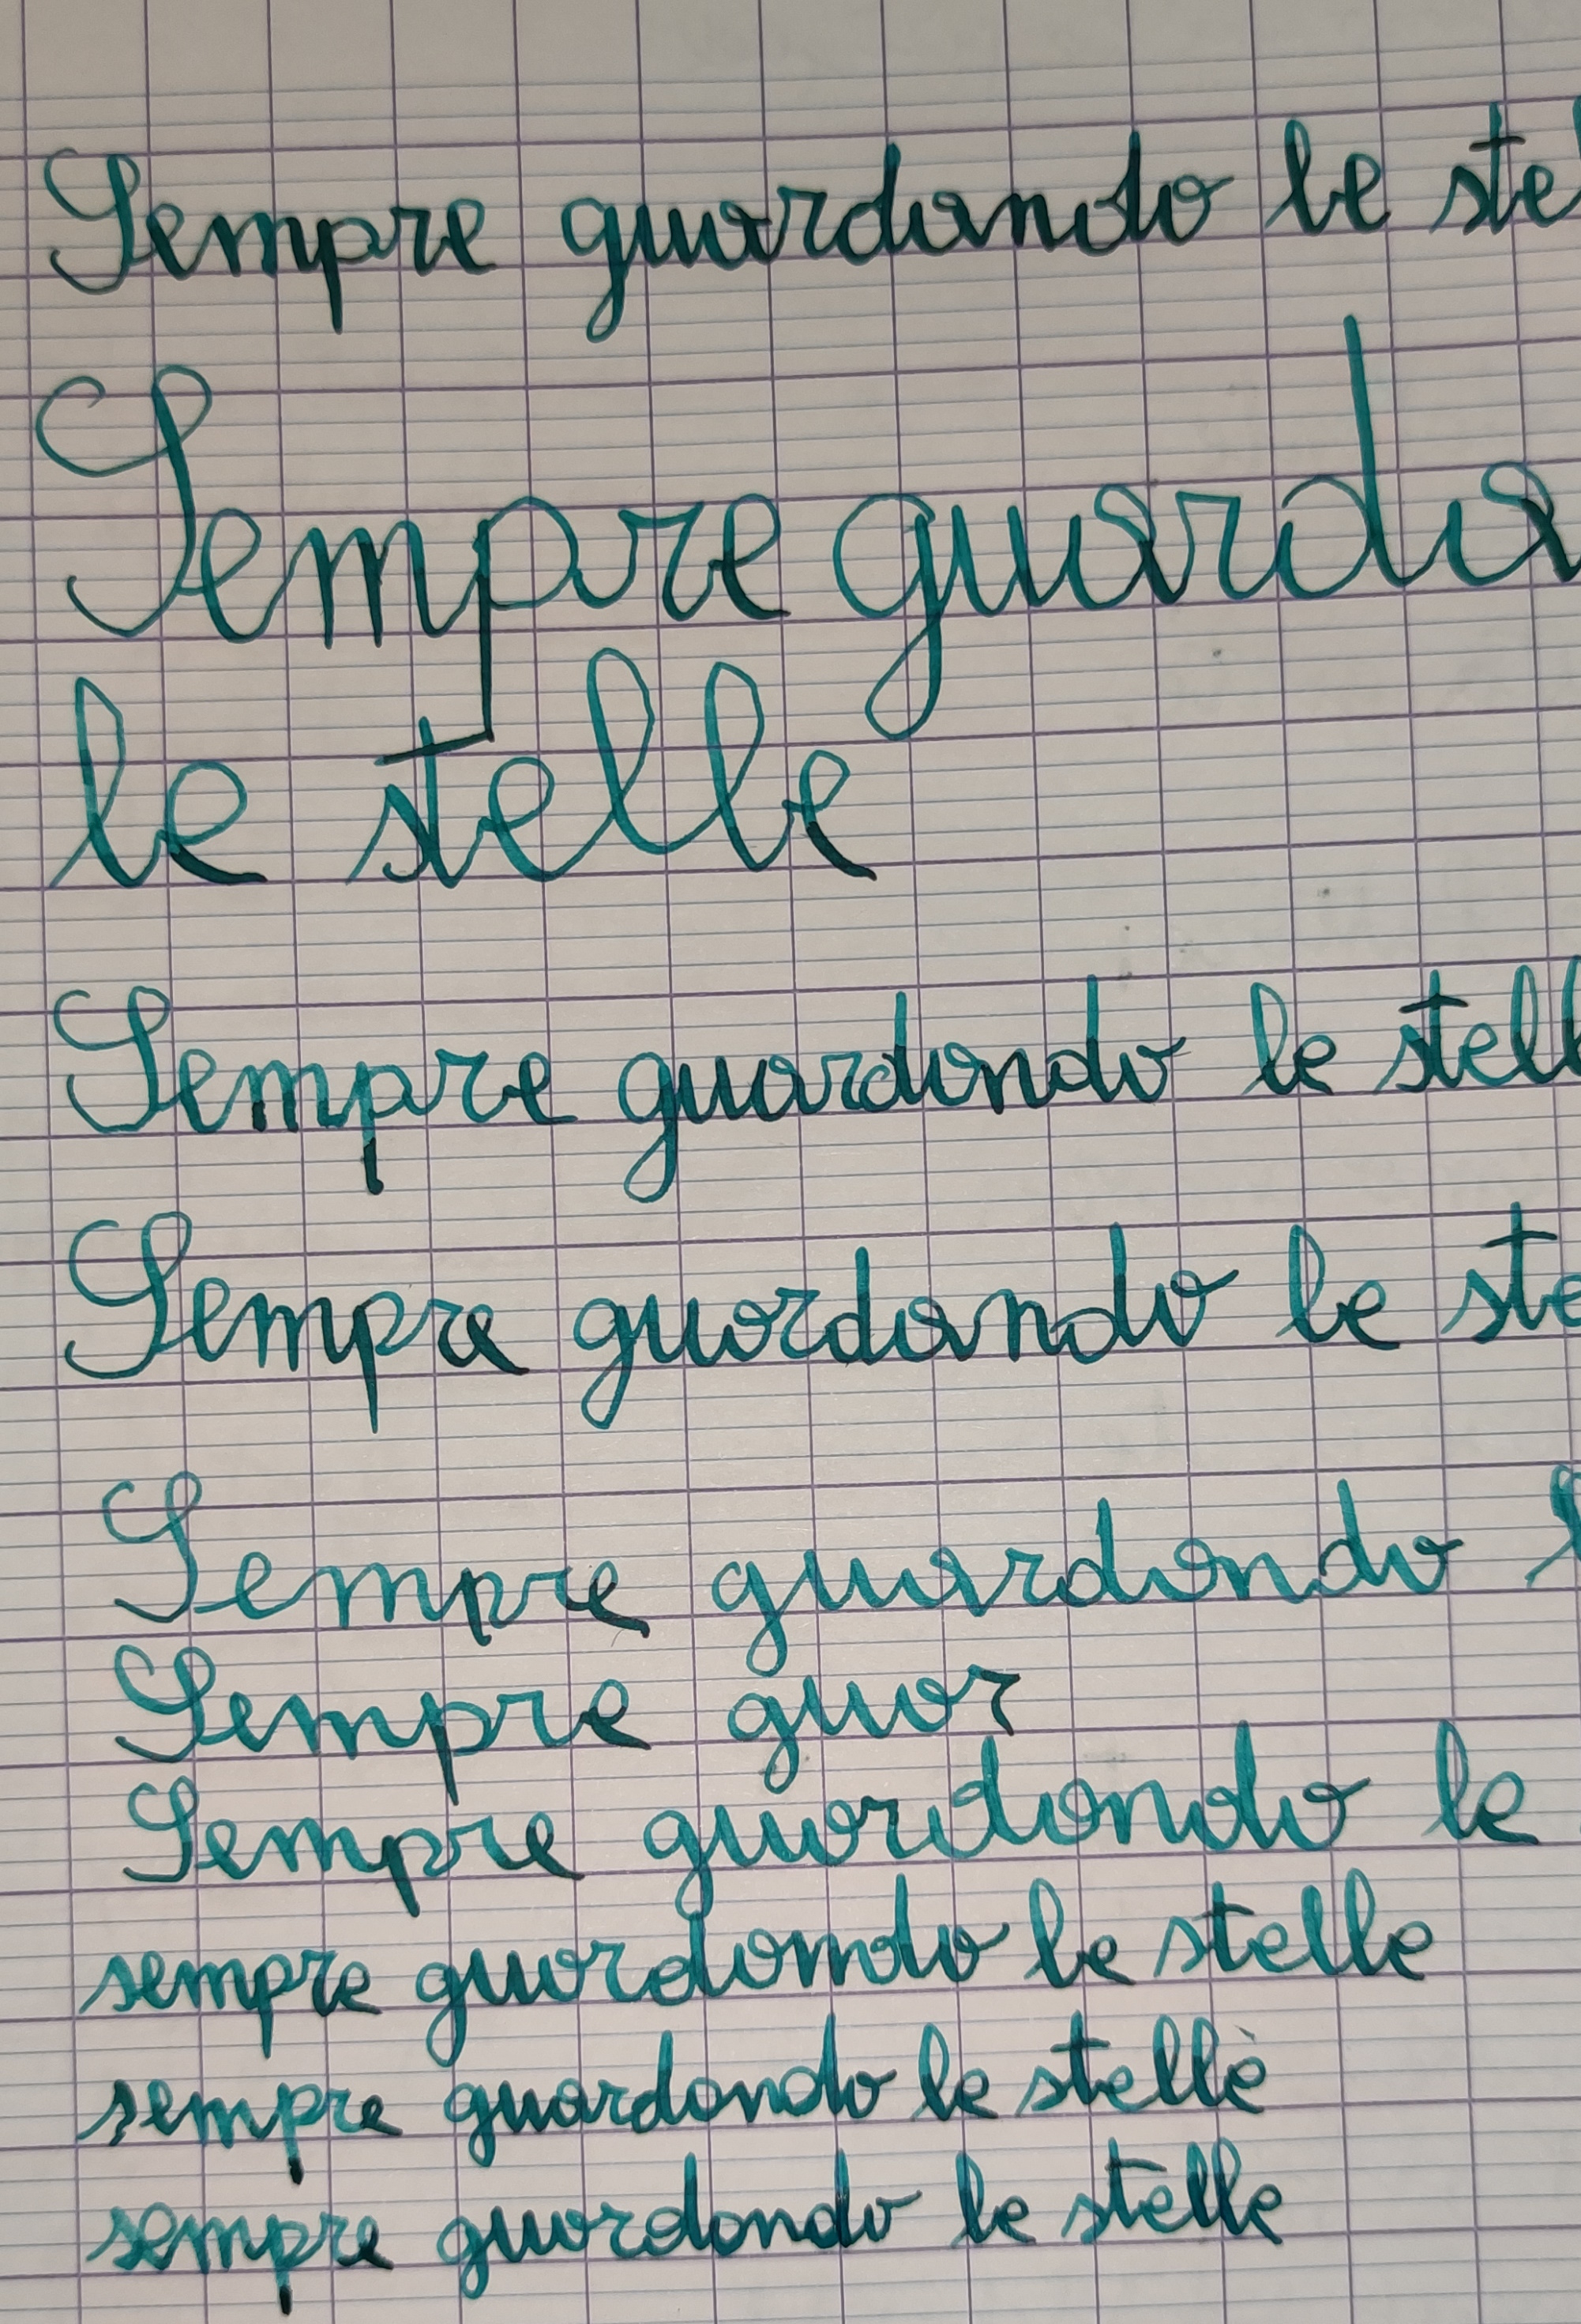 Sempre guardando le stel
Sempre guarda
le stelle
Sempre guardando le stelle
Sempre guardando le ste
Sempre guardando l
Sempre guar
Sempre guardando le
sempre guardando le stelle
sempre guardando le stelle
sempre guardando le stelle